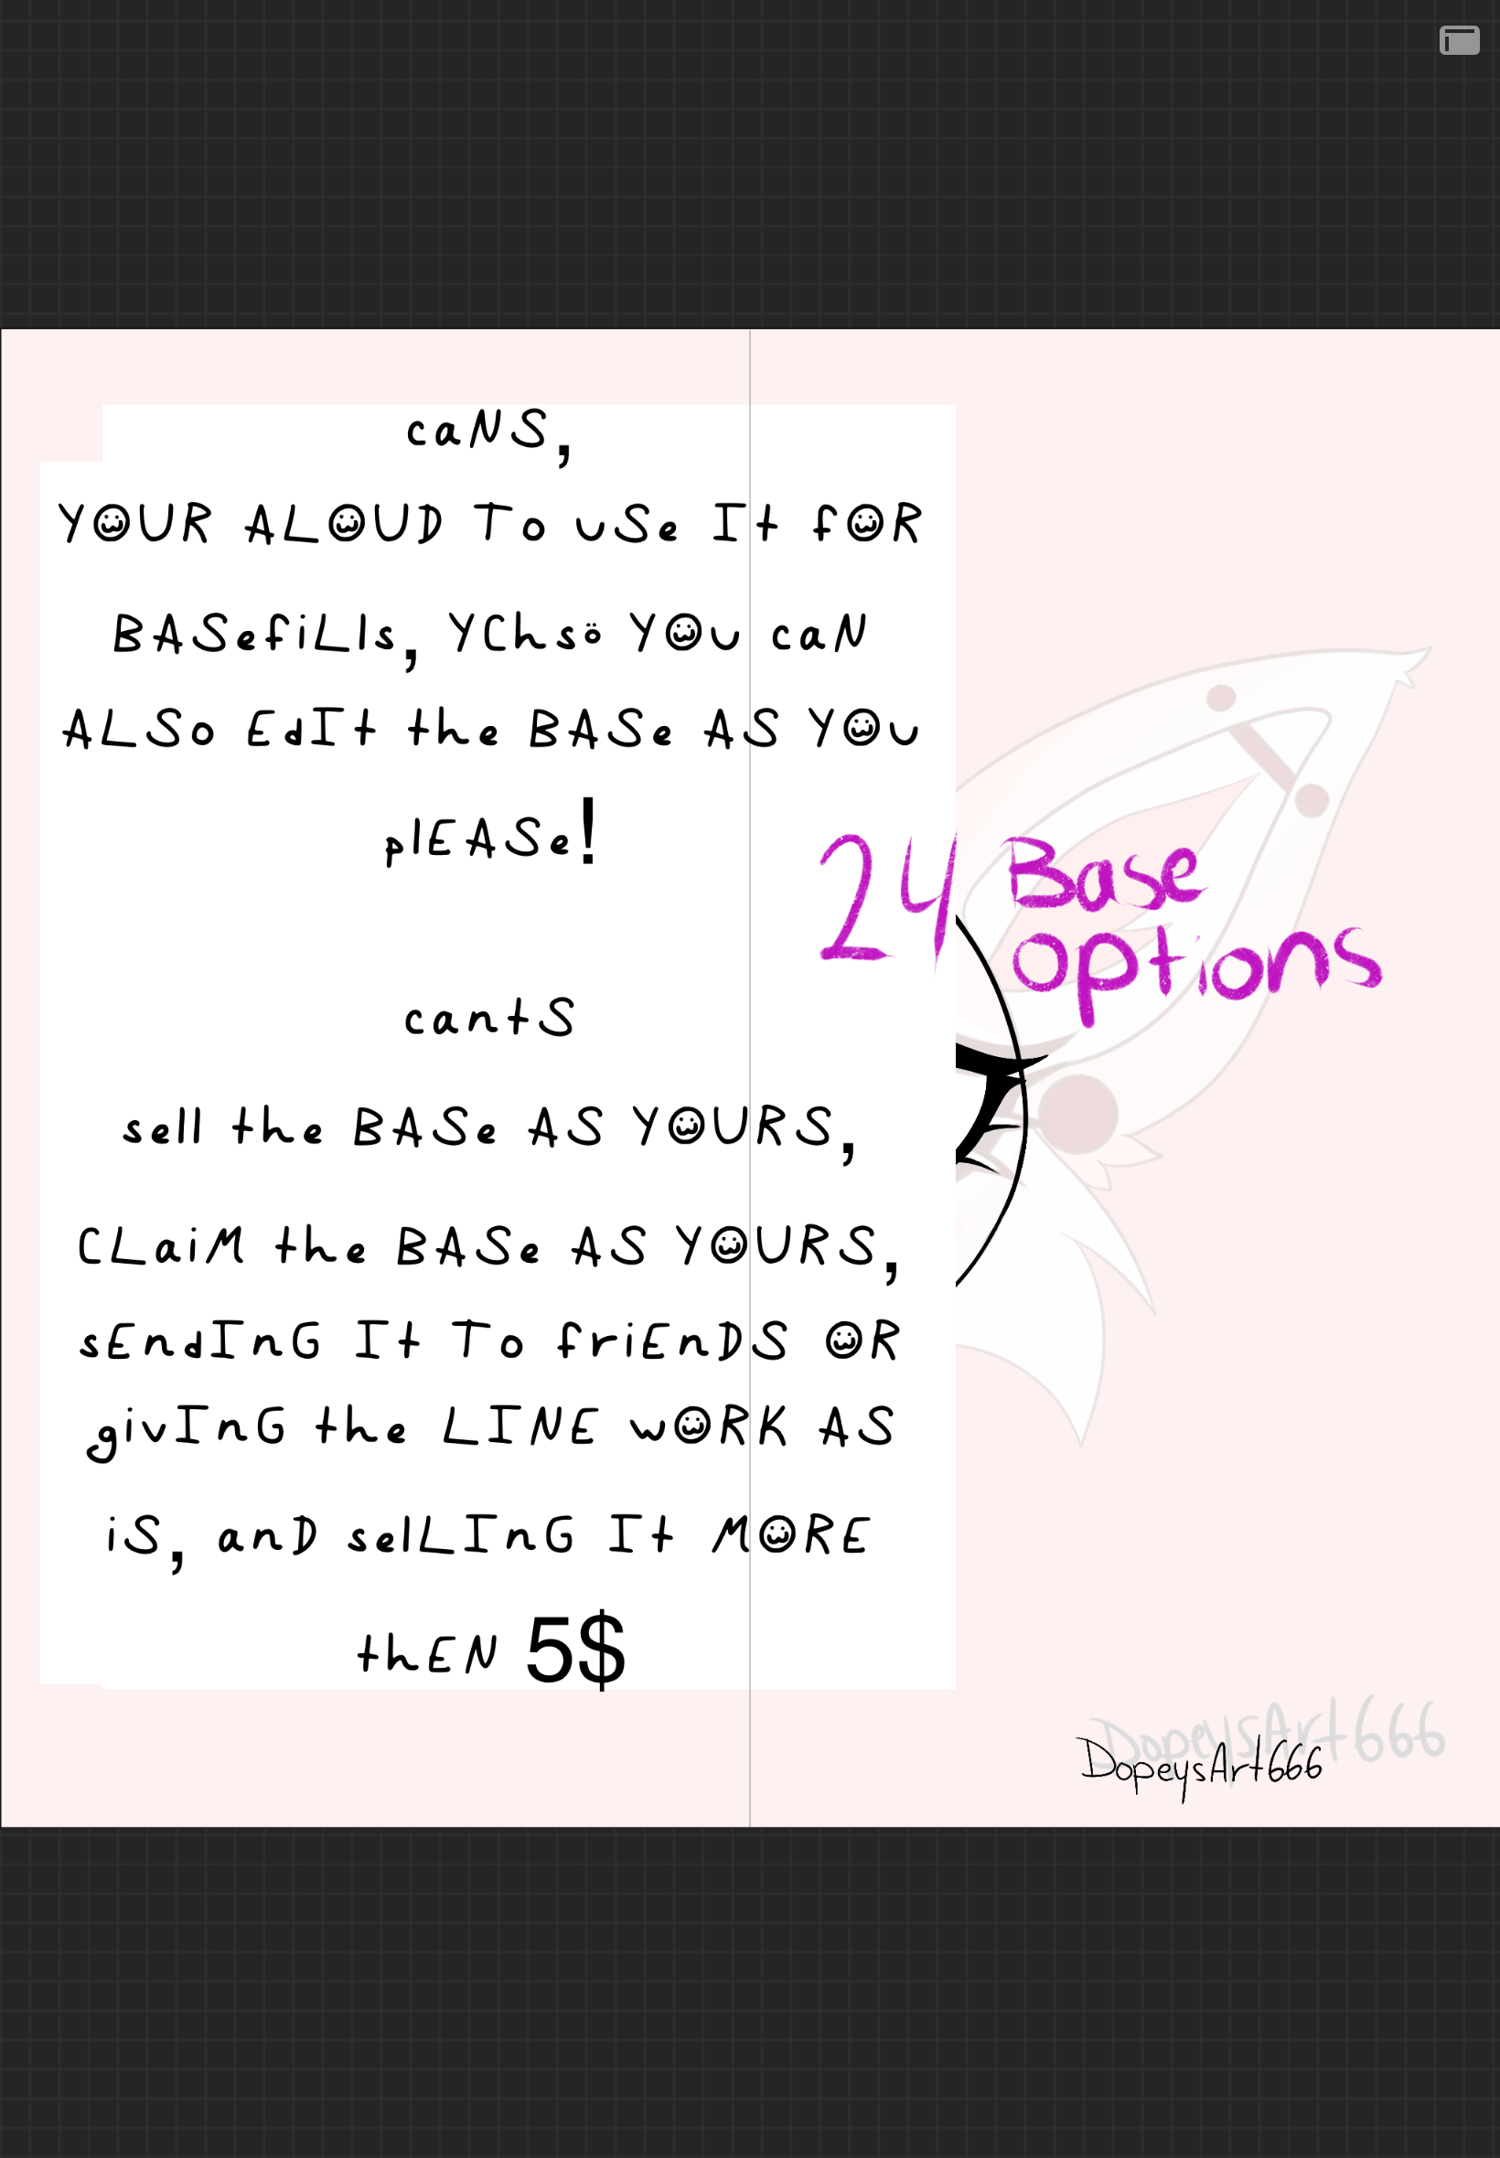 caNS,
YOUR ALOUD To uSe It fOR
BASefiLls, YChsö YOu caN
ALSo EdIt the BASe AS YOu
plEASe!
24 Base
options
cantS
sell the BASe AS YOURS,
CLaiM the BASe AS YOURS,
sEndInG It To friEnDS OR
givInG the LINE wORK AS
iS, anD selLInG It MORE
thEN 5$
DopeysArt666
DopeysArt666